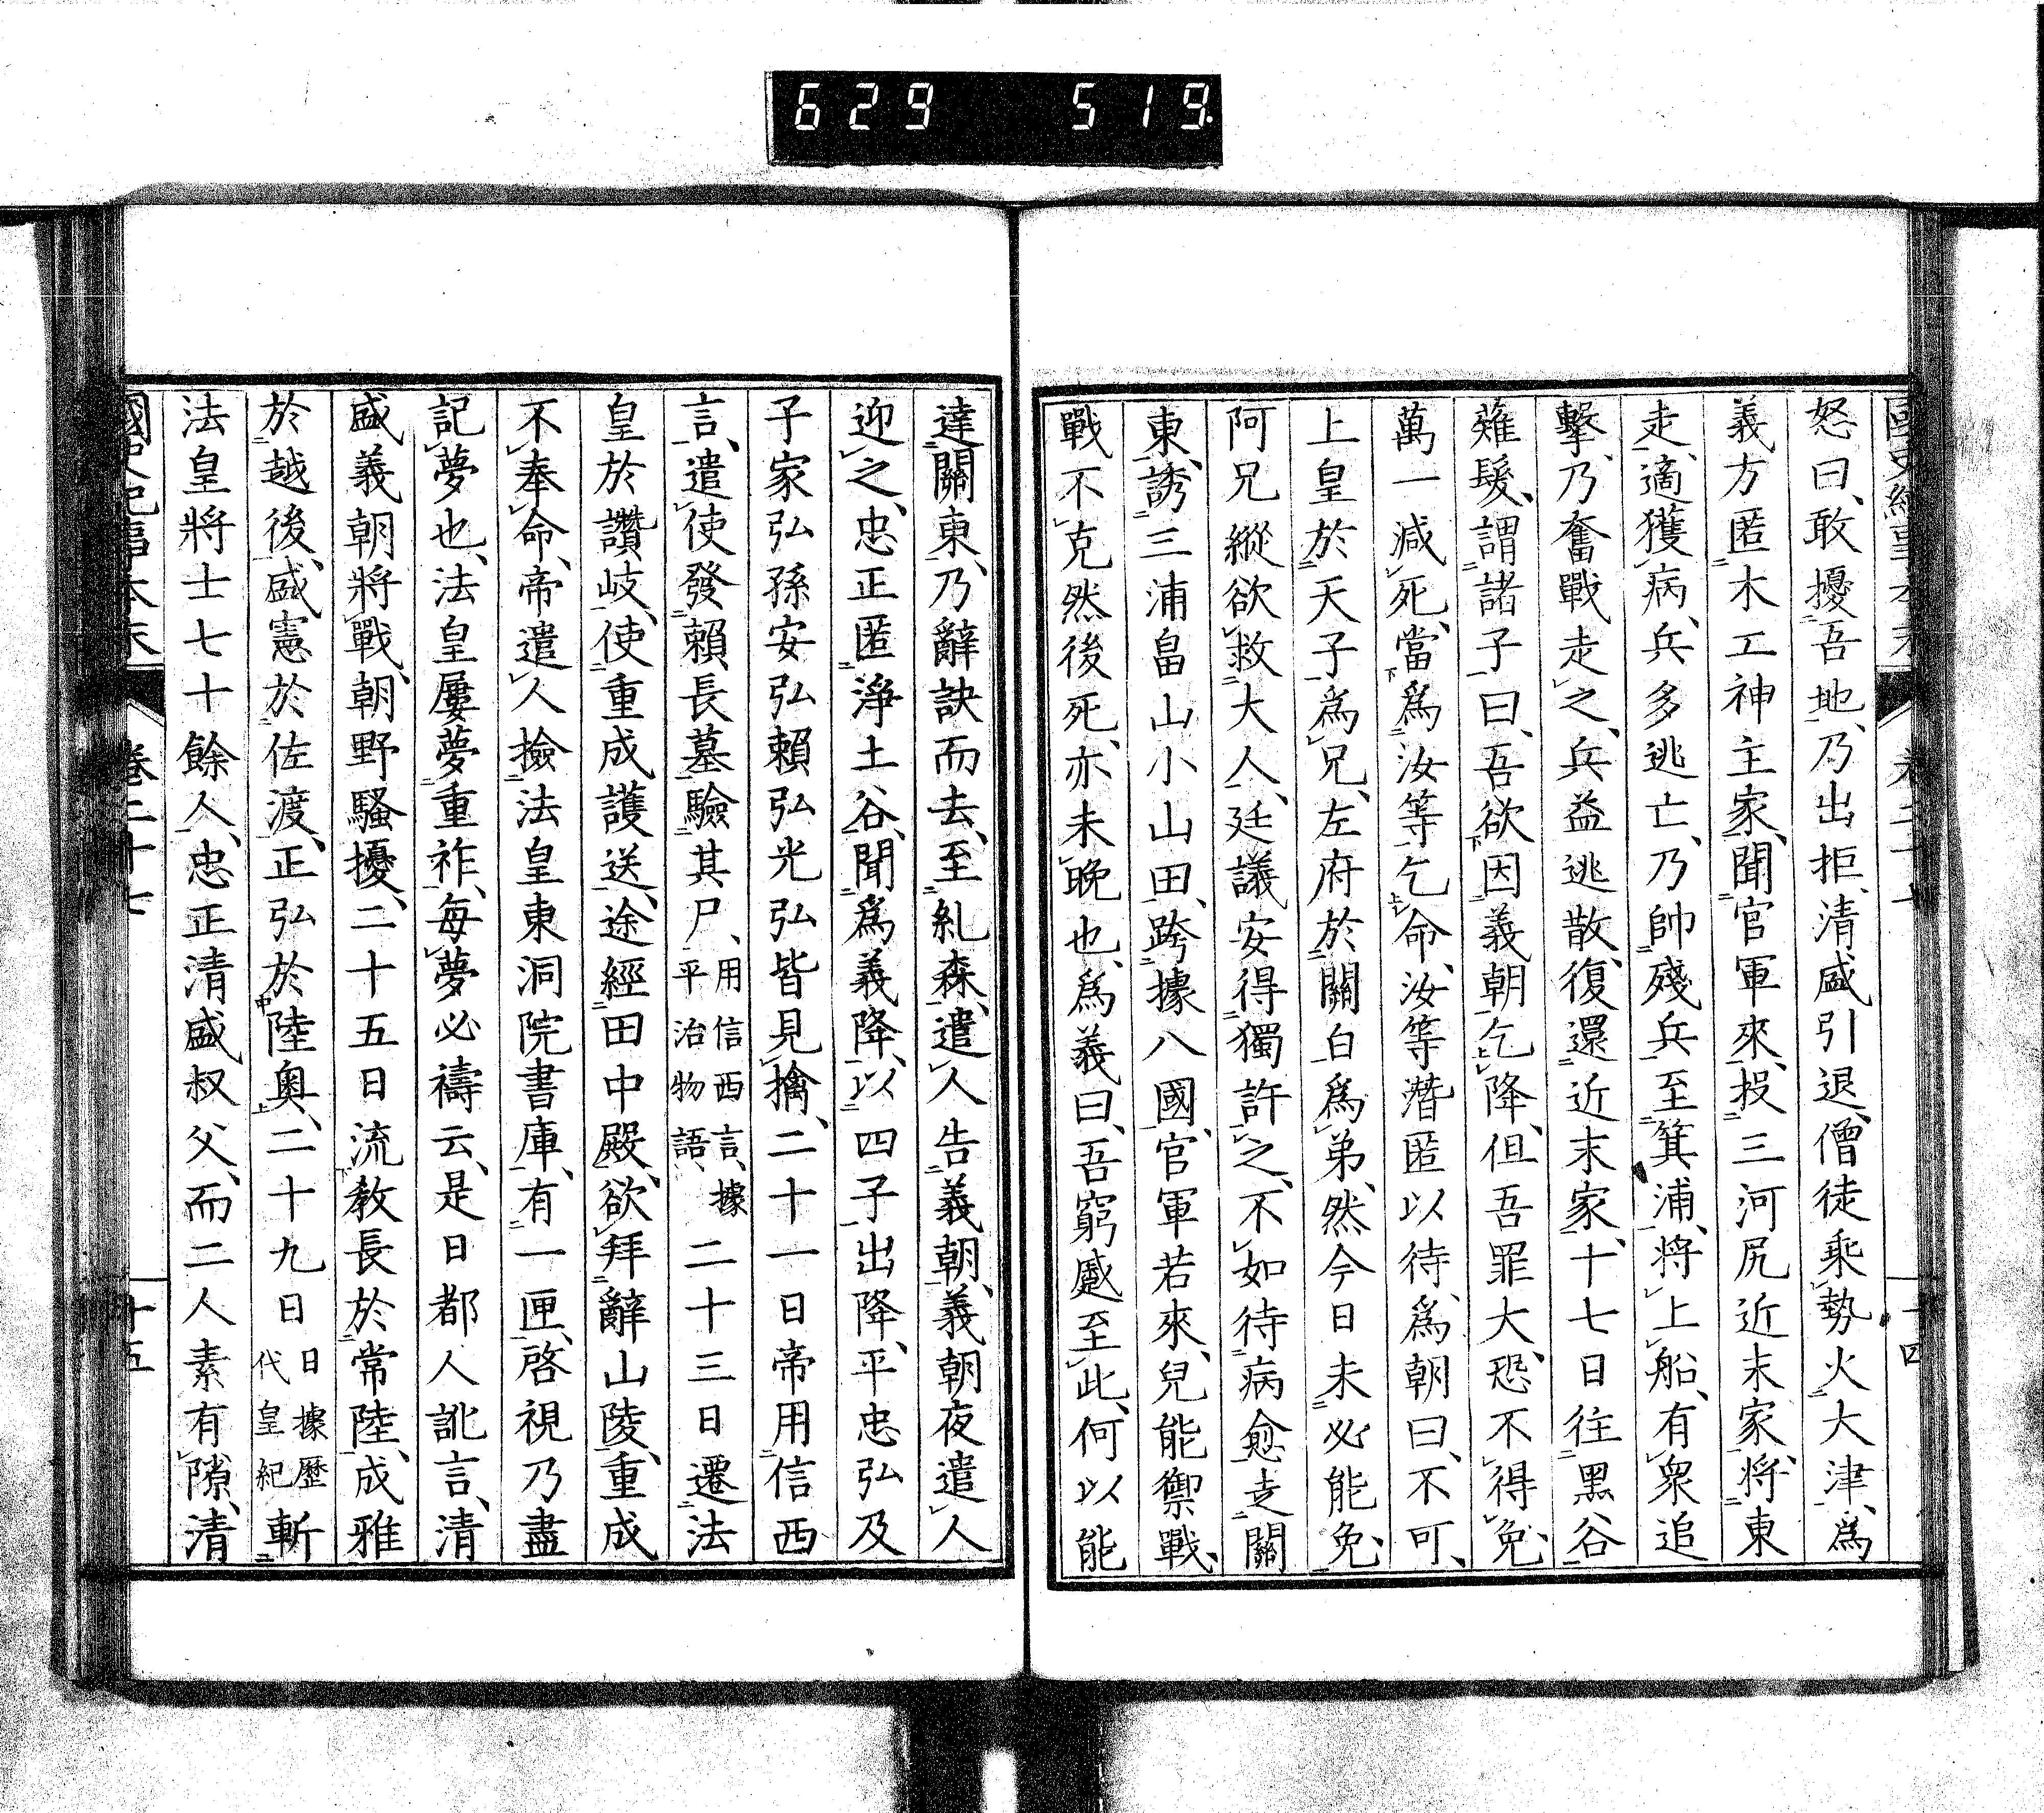 629 519.
怒曰、敢擾吾地、乃出拒、清盛引退、僧徒乘勢火大津、爲
義方匿木工神主家、聞官軍來、投三河尻近末家、將東
走、適獲病、兵多逃亡、乃帥殘兵至箕浦、將上船、有衆追
擊、乃奮戰走之、兵益逃散、復還近末家、十七日往黑谷
薙髮、謂諸子曰、吾欲因義朝乞降、但吾罪大、恐不得免、
萬一減死、當爲汝等乞命、汝等潛匿以待、爲朝曰、不可、
上皇於天子爲兄、左府於關白爲弟、然今日未必能免、
阿兄縱欲救大人、廷議安得獨許之、不如待病愈走關
東、誘三浦畠山小山田、跨據八國、官軍若來、兒能禦戰、
戰不克然後死、亦未晚也、爲義曰、吾窮蹙至此、何以能
達關東、乃辭訣而去、至糺森、遣人告義朝、義朝夜遣人
迎之、忠正匿淨土谷、聞爲義降、以四子出降、平忠弘及
子家弘孫安弘賴弘光弘皆見擒、二十一日帝用信西
言、遣使發賴長墓驗其尸、用信西言、據平治物語、二十三日遷法
皇於讚岐、使重成護送、途經田中殿、欲拜辭山陵、重成
不奉命、帝遣人撿法皇東洞院書庫、有一匣、啓視乃盡
記夢也、法皇屢夢重祚、每夢必禱云、是日都人訛言、清
盛義朝將戰、朝野騷擾、二十五日流教長於常陸、成雅
於越後、盛憲於佐渡、正弘於陸奧、二十九日日據歷代皇紀斬
法皇將士七十餘人、忠正清盛叔父、而二人素有隙、清
國史紀事本末 卷二十七 十五